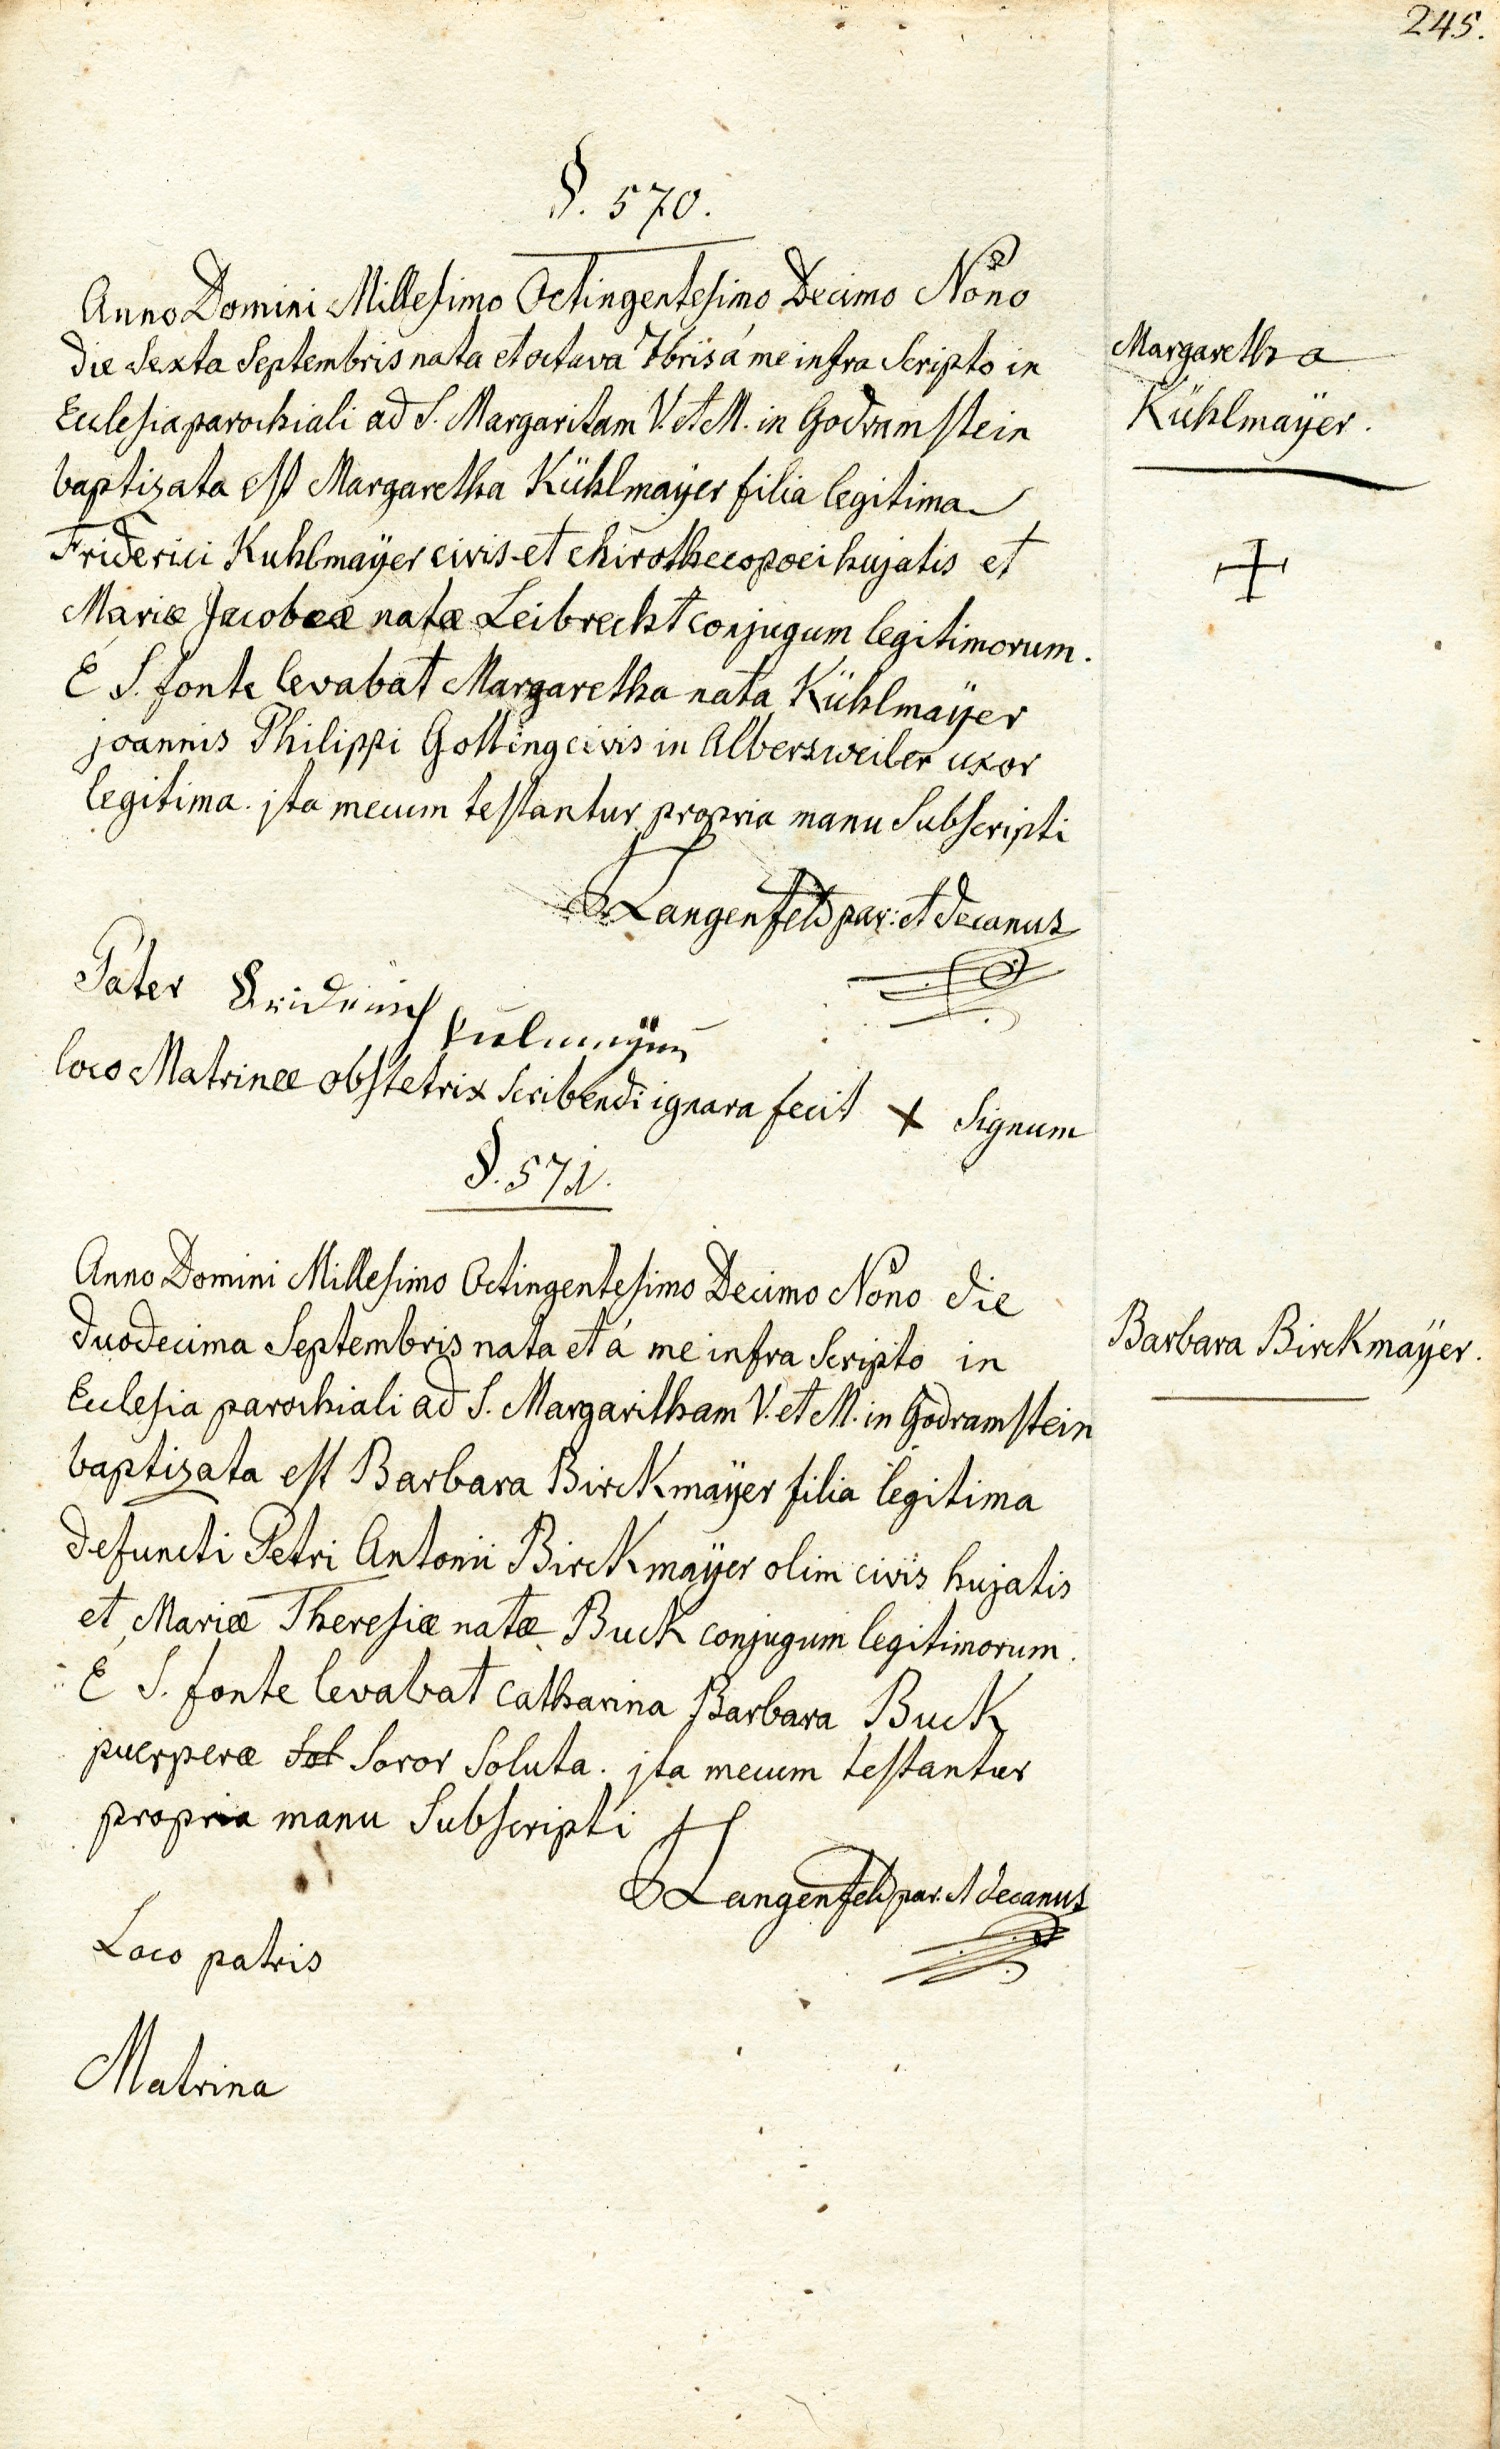 245.
§. 570.
Anno Domini Millesimo Octingentesimo Decimo Nono
die Sexta Septembris nata et octava 7bris á me infra Scripto in
Ecclesia parochiali ad S. Margaritam V. et M. in Godramstein
baptizata est Margaretha Kühlmaÿer filia legitima
Friderici Kuhlmaÿer civis et chirothecopoei hujatis et
Mariæ Jacobeæ natæ Leibrecht conjugum legitimorum.
E S. fonte levabat Margaretha nata Kühlmaÿer
joannis Philippi Gotting civis in Albersweiler uxor
legitima. jta mecum testantur propria manu Subscripti
Langenfeld par: et decanus
Margaretha
Kühlmaÿer.
Pater Fridrich
Kulmeÿer
loco Matrinæ obstetrix Scribendi ignara fecit + Signum
§. 571.
Anno Domini Millesimo Octingentesimo Decimo Nono die
duodecima Septembris nata et á me infra Scripto in
Ecclesia parochiali ad S. Margaritham V. et M. in Godramstein
baptizata est Barbara Birckmaÿer filia legitima
defuncti Petri Antonii Birckmaÿer olim civis hujatis
et Mariæ Theresiæ natæ Buck conjugum legitimorum.
E S. fonte levabat Catharina Barbara Buck
puerperæ Sol Soror Soluta. jta mecum testantur
propria manu Subscripti
Langenfeld par. et decanus
Barbara Birckmaÿer.
Loco patris
Matrina